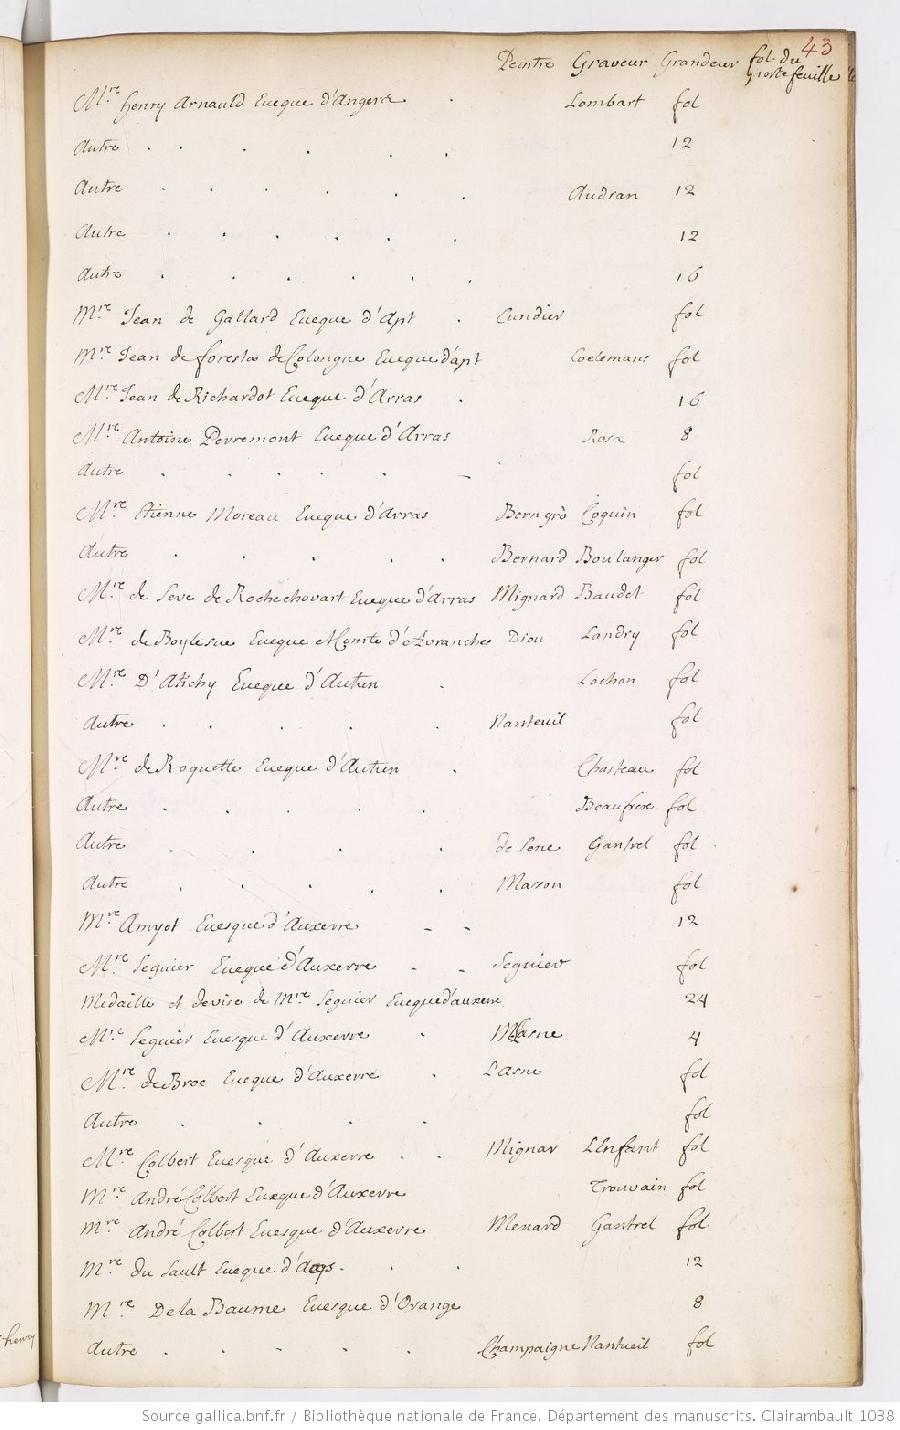 43
Peintre Graveur Grandeur fol. du
portefeuille
Mre henry Arnauld Eveque d'Angers . Lombart fol
Autre . . . . . . 12
Autre . . . . . . Audran 12
Autre . . . . . . 12
Autre . . . . . . 16
Mre Jean de Gallard Eveque d'Apt . Cundier fol
Mre Jean de foresta de Colongue Eveque d'apt Coelemans fol
Mre Jean de Richardot Eveque d'Arras . 16
Mre Antoine Perremont Eveque d'Arras 8
Autre . . . . . fol
Mre Etienne Moreau Eveque d'Arras Coquin fol
Autre . . . . . Bernard Boulanger fol
Mre de Seve de Rochechouart Eveque d'Arras Mignard Baudet fol
Mre de Boylesve Eveque et Comte d'Avranches Dieu Landry fol
Mre D'Atichy Eveque d'Autun . Lochon fol
Autre . . . . . Nanteuil fol
Mre de Roquette Eveque d'Autun . Chasteau fol
Autre . . . . Beaufrere fol
Autre . . . . de Seve Gantrel fol .
Autre . . . . Masson fol
Mre Amyot Evesque d'Auxerre - - 12
Mre Seguier Eveque d'Auxerre - - Seguier fol
Medaille et devise de Mre Seguier Eveque d'auxerre 24
Mre Seguier Evesque d'Auxerre . 4
Mre de Broc Eveque d'Auxerre . L'Asne fol
Autre . . . . fol
Mre Colbert Evesque d'Auxerre . . Mignar L'Enfant fol
Mre André Colbert Evêque d'Auxerre Trouvain fol
Mre André Colbert Evesque d'Auxerre Menard Gantrel fol
Mre du Sault Eveque d'Acqs . . . 12
Mre De la Baume Evesque d'Orange 8
Autre . . . . . Champaigne Nanteuil fol
henry
Source gallica.bnf.fr / Bibliothèque nationale de France. Département des manuscrits. Clairambault 1038